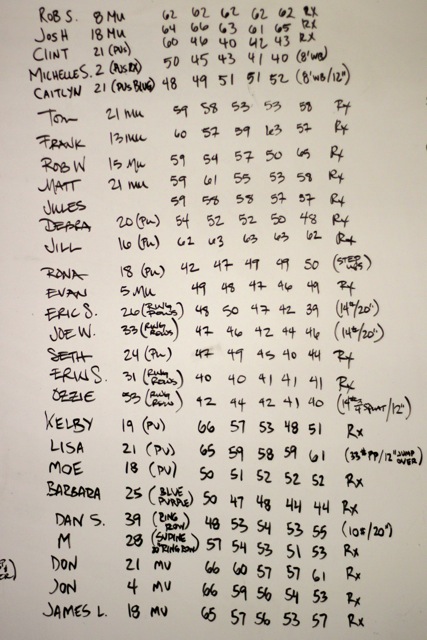 ROB S. 8 MU 62 62 62 62 62 RX
JOSH 18 MU 64 66 63 61 65 RX
CLINT 21 (PUS) 60 46 40 42 43 RX
MICHELLE S. 2 (PUS RX) 50 45 43 41 40 (8'WB)
CAITLYN 21 (PUS BLUE) 48 49 51 51 52 (8'WB/12")
TOM 21 MU 59 58 53 53 58 Rx
FRANK 13 MU 60 57 59 63 57 Rx
ROB W 15 MU 59 54 57 50 65 Rx
MATT 21 MU 59 61 55 53 58 Rx
JULES 59 58 58 57 57 Rx
DEBRA 20 (PU) 54 52 52 50 48 Rx
JILL 16 (PU) 62 63 63 63 62 Rx
RONA 18 (PU) 42 47 49 49 50 (STEP UPS)
EVAN 5 MU 49 48 47 46 49 Rx
ERIC S. 26 (RING ROWS) 48 50 47 42 39 (14#/20")
JOE W. 33 (RING ROWS) 47 46 42 44 46 (14#/20")
SETH 24 (PU) 47 49 45 40 44 Rx
ERIN S. 31 (RING ROWS) 40 40 41 41 41 Rx
OZZIE 53 (RING ROW) 42 44 42 41 40 (14# /12")
KELBY 19 (PU) 66 57 53 48 51 Rx
LISA 21 (PU) 65 59 58 59 61 (33# PP/12" JUMP OVER)
MOE 18 (PU) 50 51 52 52 52 Rx
BARBARA 25 (BLUE PURPLE) 50 47 48 44 44 Rx
DAN S. 39 (RING ROW) 48 53 54 53 55 (10#/20")
M 28 (SUPINE RING ROW) 57 54 53 51 53 Rx
DON 21 MU 66 60 57 57 61 Rx
JON 4 MU 66 59 56 54 53 Rx
JAMES L. 18 MU 65 57 56 53 57 Rx